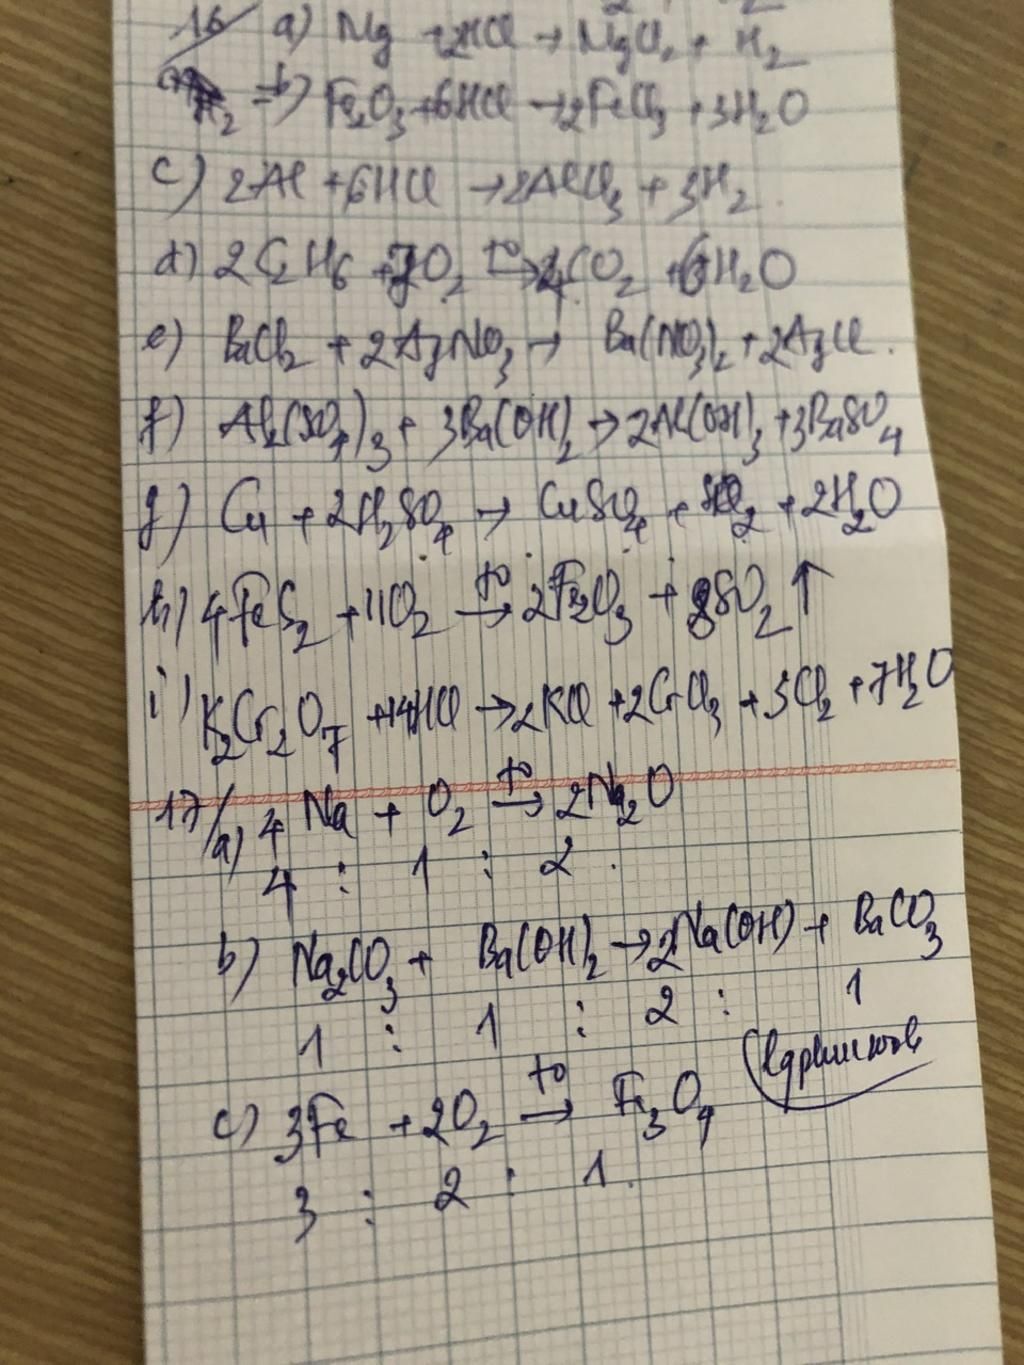 16/ a) Mg + 2HCl → MgCl₂ + H₂
b) Fe₂O₃ + 6HCl → 2FeCl₃ + 3H₂O
c) 2Al + 6HCl → 2AlCl₃ + 3H₂.
d) 2C₂H₆ + 7O₂ t⁰→ 4CO₂ + 6H₂O
e) BaCl₂ + 2AgNO₃ → Ba(NO₃)₂ + 2AgCl.
f) Al₂(SO₄)₃ + 3Ba(OH)₂ → 2Al(OH)₃ + 3BaSO₄
g) Cu + 2H₂SO₄ → CuSO₄ + SO₂ + 2H₂O
h) 4FeS₂ + 11O₂ t⁰→ 2Fe₂O₃ + 8SO₂ ↑
i) K₂Cr₂O₇ + 14HCl → 2KCl + 2CrCl₃ + 3Cl₂ + 7H₂O
17/ a) 4Na + O₂ t⁰→ 2Na₂O
4 : 1 : 2.
b) Na₂CO₃ + Ba(OH)₂ → 2Na(OH) + BaCO₃
1 : 1 : 2 : 1
c) 3Fe + 2O₂ t⁰→ Fe₃O₄
3 : 2 : 1.